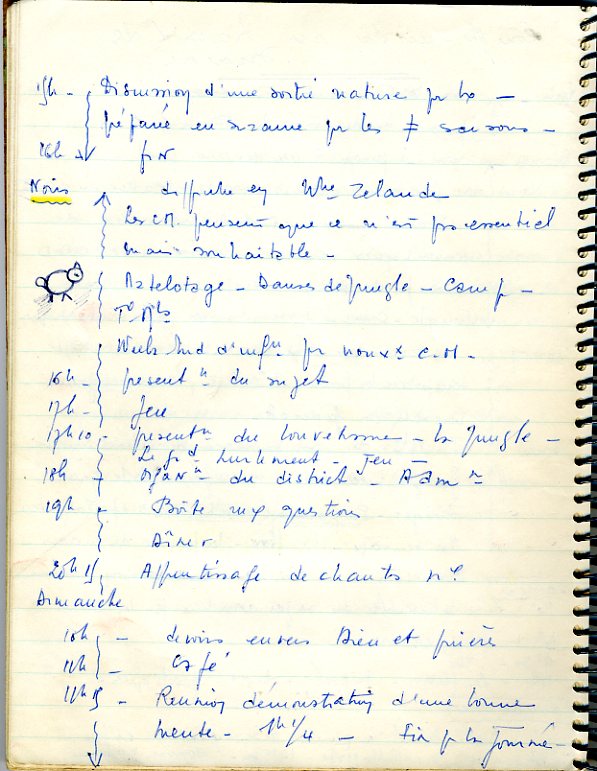 15h - Discussion d'une sortie nature pr Lx -
préparée en sizaine pr les ≠ saisons -
16h fin
Noirs diffusée en Nlle Zelande
Les CM. pensent que ce n'est pas essentiel
mais souhaitable -
Matelotage - Danses de jungle - Camp -
Week End d'infon pr nouvx C.M.
16h - presentn du sujet
17h - Jeu
17h10 - presentn du louvetisme - la Jungle -
Le gd hurlement - Jeu -
18h - Organn du district - Admn
19h - Boîte aux questions
Dîner
20h 15 Apprentissage de chants
Dimanche
10h - devoirs envers Dieu et prières
11h - Café
11h 15 - Réunion démonstration d'une bonne
meute - 1h 1/4 - Fin p la Journée -